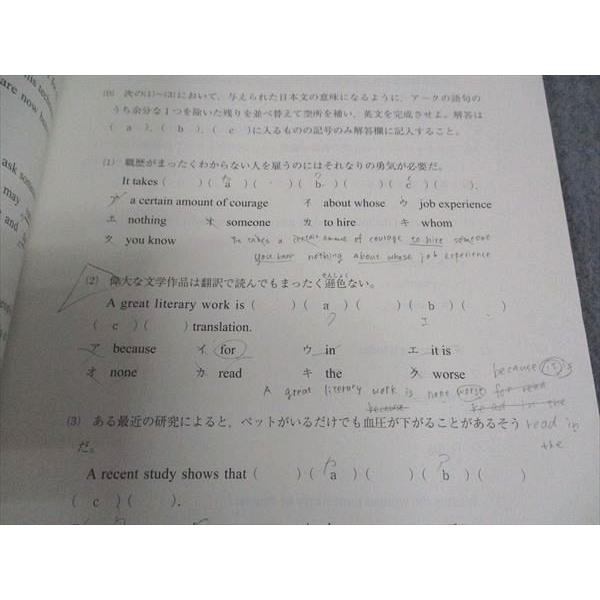 are now
ask
may
and
(B) 次の(1)~(3)において、与えられた日本文の意味になるように、ア~クの語句の
うち余分な1つを除いた残りを並べ替えて空所を補い、英文を完成させよ。解答は
( a ), ( b ), ( c )に入るものの記号のみ解答欄に記入すること。
(1) 職歴がまったくわからない人を雇うのにはそれなりの勇気が必要だ。
It takes ( )( a )( )( b )( )( c )( ).
ア a certain amount of courage イ about whose ウ job experience
エ nothing オ someone カ to hire キ whom
ク you know
It takes a certain amount of courage to hire someone
you know nothing about whose job experience
(2) 偉大な文学作品は翻訳で読んでもまったく遜色ない。
そんしょく
A great literary work is ( )( a )( )( b )( )
( c )( )translation.
ア because イ for ウ in エ it is
オ none カ read キ the ク worse
because it is
A great literary work is none worse for read
because read in the
read in
the
(3) ある最近の研究によると、ペットがいるだけでも血圧が下がることがあるそう
だ。
A recent study shows that ( )( a )( )( b )( )
( c )( ).